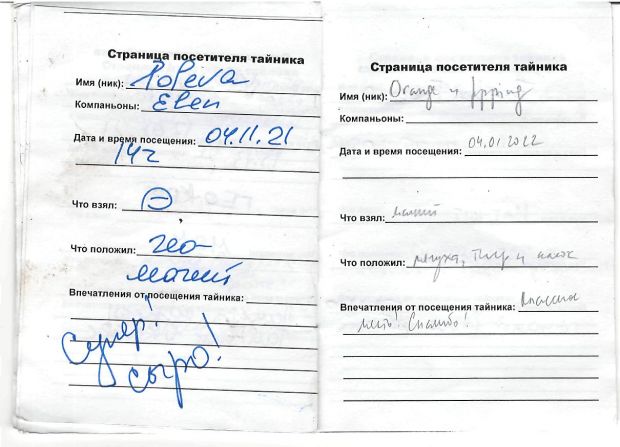 Страница посетителя тайника
Имя (ник): Poleva
Компаньоны: Even
Дата и время посещения: 04.11.21
14ч
Что взял: ⊖
Что положил: гео-
магнит
Впечатления от посещения тайника:
Супер!
сыро!
Страница посетителя тайника
Имя (ник): Orange и
Компаньоны:
Дата и время посещения: 04.01 2022
Что взял: магнит
Что положил: и
Впечатления от посещения тайника: Классное
место! Спасибо!